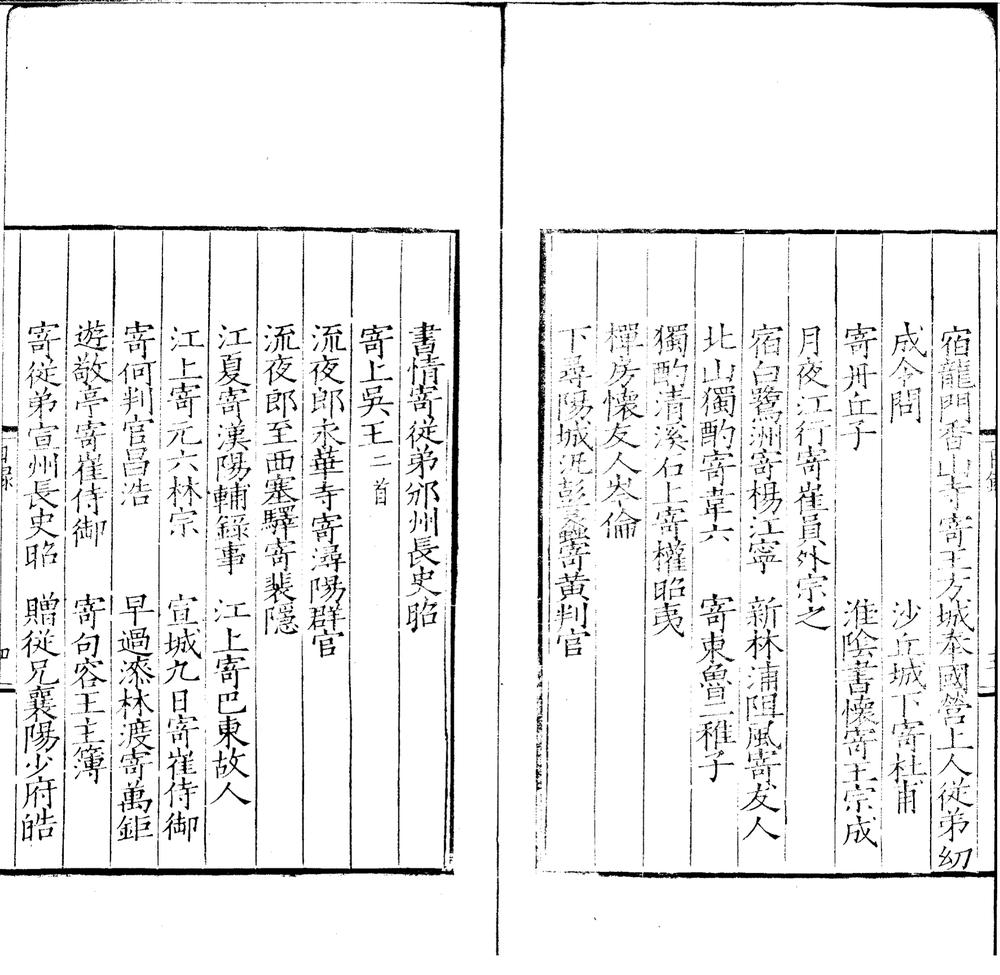 宿龍門香山寺寄王方城奉國營上人從弟幼
成令問　沙丘城下寄杜甫
寄丹丘子　淮陰書懷寄王宗成
月夜江行寄崔員外宗之
宿白鷺洲寄楊江寧　新林浦阻風寄友人
北山獨酌寄韋六　寄東魯二稚子
獨酌清溪石上寄權昭夷
禪房懷友人岑倫
下尋陽城汎彭蠡寄黃判官
書情寄從弟邠州長史昭
寄上吳王二首
流夜郎永華寺寄潯陽群官
流夜郎至西塞驛寄裴隱
江夏寄漢陽輔錄事　江上寄巴東故人
江上寄元六林宗　宣城九日寄崔侍御
寄何判官昌浩　早過漆林渡寄萬鉅
遊敬亭寄崔侍御　寄句容王主簿
寄從弟宣州長史昭　贈從兄襄陽少府皓
目錄
四